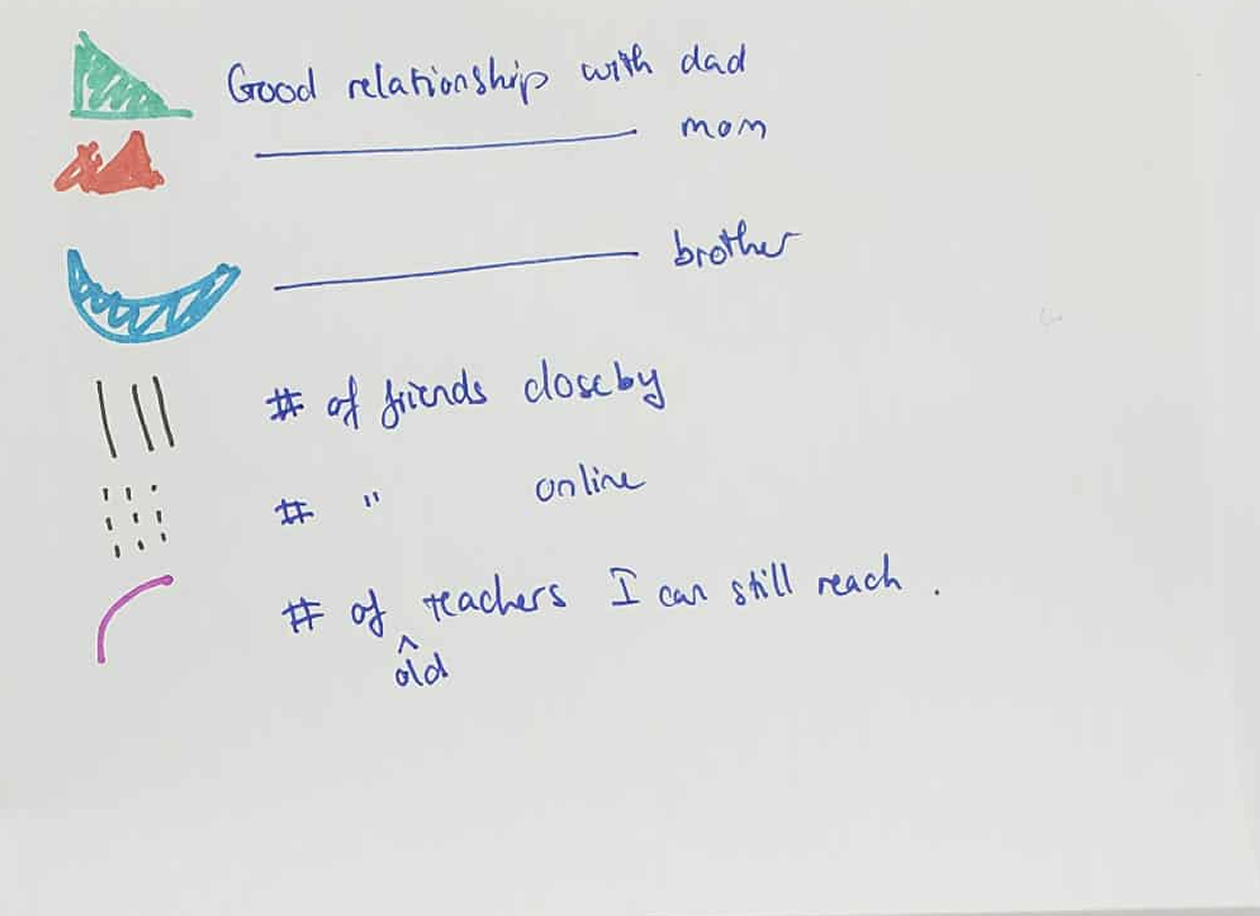 Good relationship with dad
mom
brother
# of friends closeby
# " online
# of ^ teachers I can still reach.
old